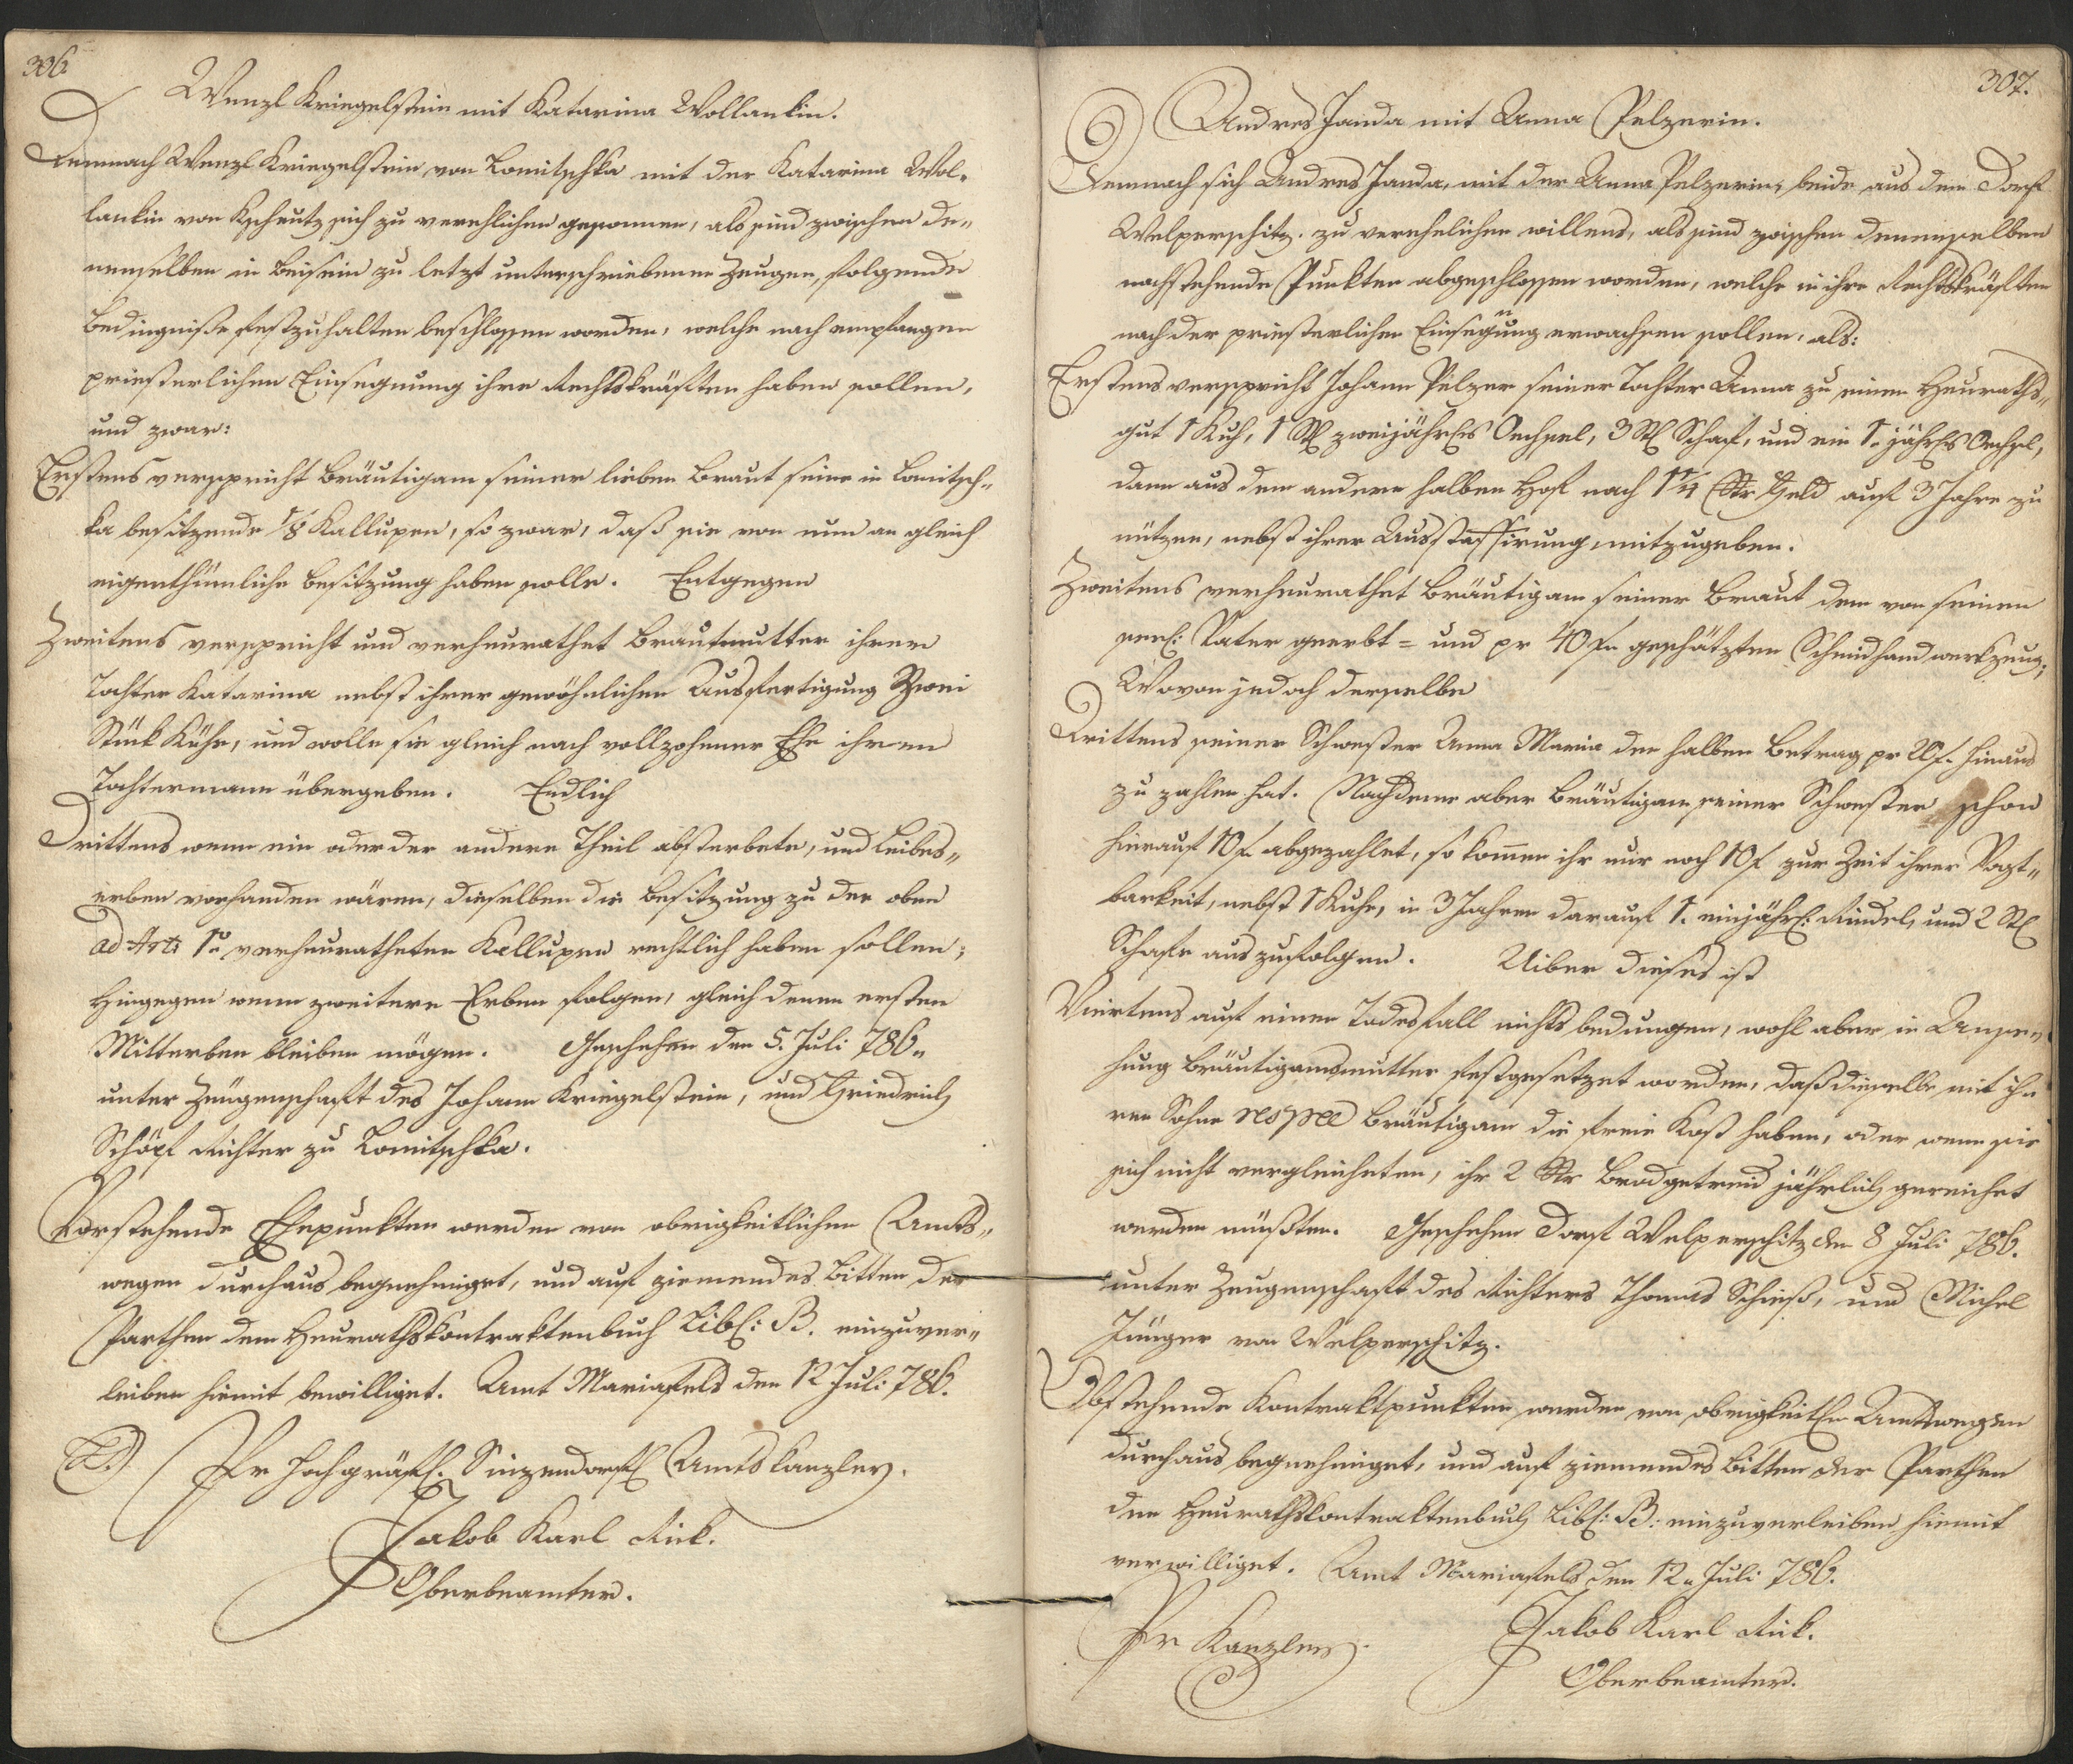 306.
Wenzl Kriegelstein mit Katarina Wollankin.
Demnach Wenzl Kriegelstein von Lomitschka mit der Katarina Wol-
lankin von Kscheutz sich zu verehlichen gesonnen, als sind zwischen de-
nenselben in Beisein zu letzt unterschriebenen Zeugen, folgende
Bedingniße festzuhalten beschlossen worden, welche nach empfangen
priesterlichen Einsegnung ihre Rechtskräften haben sollen,
und zwar:
Erstens verspricht Bräutigam seiner lieben Braut seine in Lomitsch-
ka besitzende 1/8 Kallupen, so zwar, daß sie von nun an gleich
eigenthümliche Besitzung haben solle. Entgegen
Zweitens verspricht und verheurathet Brautmutter ihrer
Tochter Katarina nebst ihrer gewöhnlichen Ausfertigung Zwei
Stück Kühe, und wolle sie gleich nach vollzohener Ehe ihren
Tochtermann übergeben. Endlich
Drittens wenn ein oder der andere Theil absterbete, und Leibes-
erben vorhanden wären, dieselben die Besitzung zu der oben
ad Art: 1º verheuratheten Kallupen rechtlich haben sollen;
Hingegen wenn zweitere Erben folgen, gleich denen ersten
Miterben bleiben mögen. Geschehen den 5. Juli 786.
unter Zeugenschaft des Johann Kriegelstein, und Friedrich
Schöpf Richter zu Lomitschka.
Vorstehende Ehepunkten werden von obrigkeitlichen Amts-
wegen durchaus begnehmiget, und auf ziemendes Bitten der
Parthen dem Heurathskontraktenbuch Lib: B. einzuver-
leiben hiemit bewilliget. Amt Mariafels den 12 Juli 786.
Pr Hochgräfl: Sinzendorfl Amtskanzley.
Jakob Karl Rick.
Oberbeamter.
307.
Andres Janda mit Anna Pelzerin.
Demnach sich Andres Janda, mit der Anna Pelzerin, beide aus dem Dorf
Welperschitz zu verehelichen willens, als sind zwischen denenselben
nachstehende Punkten abgeschlossen worden, welche in ihre Rechtskräften
nach der priesterlichen Einsegnung erwachsen sollen, als:
Erstens verspricht Johann Pelzer seiner Tochter Anna zu einen Heuraths-
gut 1 Kuh, 1 Stl zweijährhs Oechsel, 3 Stl Schaf, und ein 1. jährhs Oechsl,
dann aus dem andern halben Hof nach 1 1/4 Str Feld auf 3 Jahre zu
nützen, nebst ihrer Ausstaffirung mitzugeben.
Zweitens verheurathet Bräutigam seiner Braut den von seinen
seel: Vater geerbt= und pr 40 f. geschätzten Schmidhandwerkzeug;
Wovon jedoch derselbe
Drittens seiner Schwester Anna Maria den halben Betrag pr 20 f. hinaus
zu zahlen hat. Nachdeme aber Bräutigam seiner Schwester schon
hierauf 10 f. abgezahlet, so komen ihr nur noch 10 f zur Zeit ihrer Vogt-
barkeit, nebst 1 Kuhe, in 3 Jahren darauf 1. einjährl: Rindel, und 2 Stl
Schafe auszufolgen. Uiber dieses ist
Viertens auf einen Todesfall nichts bedungen, wohl aber in Anse-
hung Bräutigamsmutter festgesetzet worden, daß dieselbe mit ih-
ren Sohne respee Bräutigam die freie Kost haben, oder wenn sie
sich nicht vergleicheten, ihr 2 Str Brodgetreid jährlich gereichet
werden müßten. Geschehen Dorf Welperschitz den 8 Juli 786.
unter Zeugenschaft des Richters Thomas Schieß, und Michel
Jünger von Welperschitz.
Obstehende Kontraktpunkten werden von obrigkeithn Amtswegen
durchaus begnehmiget, und auf ziemendes Bitten der Parthen
dem Heurathskontraktenbuch Lib: B: einzuverleiben hiemit
verwilliget. Amt Mariafels den 12. Juli 786.
Pr Kanzley.
Jakob Karl Rick.
Oberbeamter.